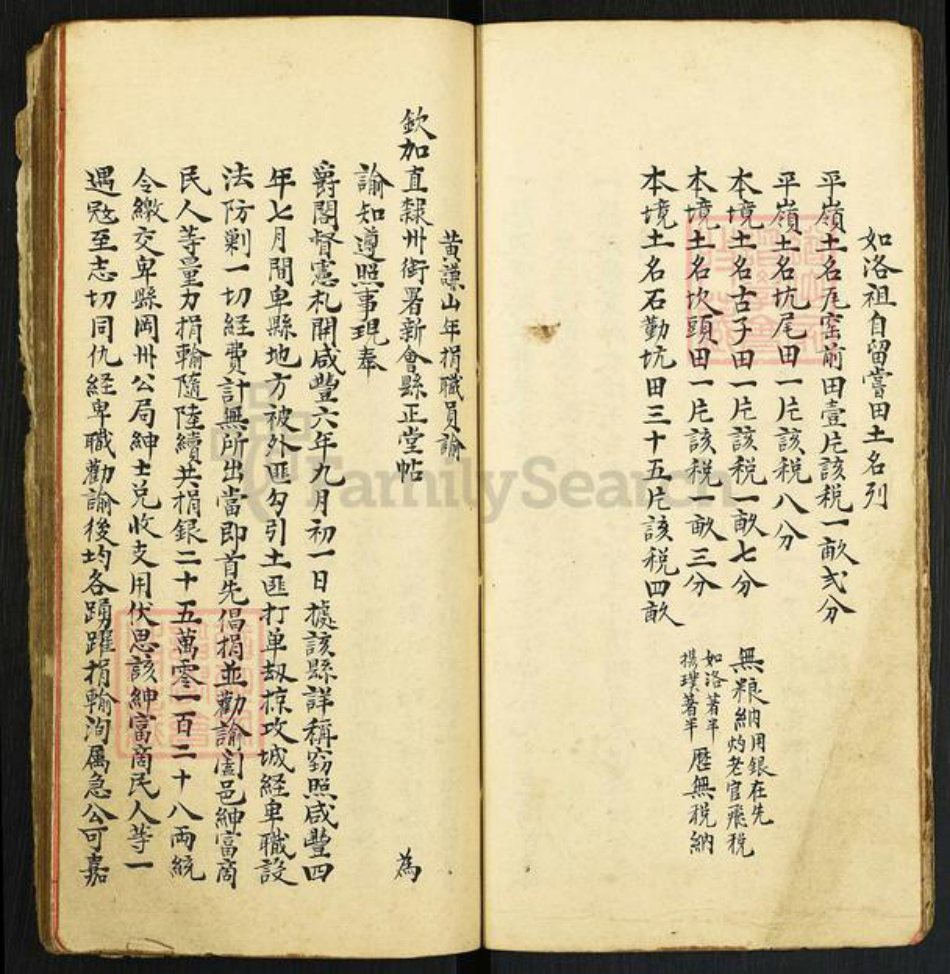 如洛祖自留嘗田土名列
平嶺土名瓦窑前田壹片該税一畝弍分
平嶺土名坑尾田一片該税八分
本境土名古子田一片該税一畝七分
本境土名坎頭田一片該税一畝三分
本境土名石勤坑田三十五片該税四畝
無粮納用銀在先
灼老官飛税
如洛著半
楊璞著半
歷無税納
黄謙山年捐職員諭
欽加直隸州銜署新會縣正堂帖 為
諭知遵照事現奉
爵閣督憲札開咸豐六年九月初一日據該縣詳稱窃照咸豐四
年七月間卑縣地方被外匪勾引土匪打单刼掠攻城経卑職設
法防剿一切経費計無所出當即首先倡捐並勸諭闔邑紳富商
民人等量力捐輸隨陸續共捐銀二十五萬零一百二十八両統
令繳交卑縣岡州公局紳士兑收支用伏思該紳富商民人等一
遇冦至志切同仇経卑職勸諭後均各踴躍捐輸洵属急公可嘉
FamilySearch